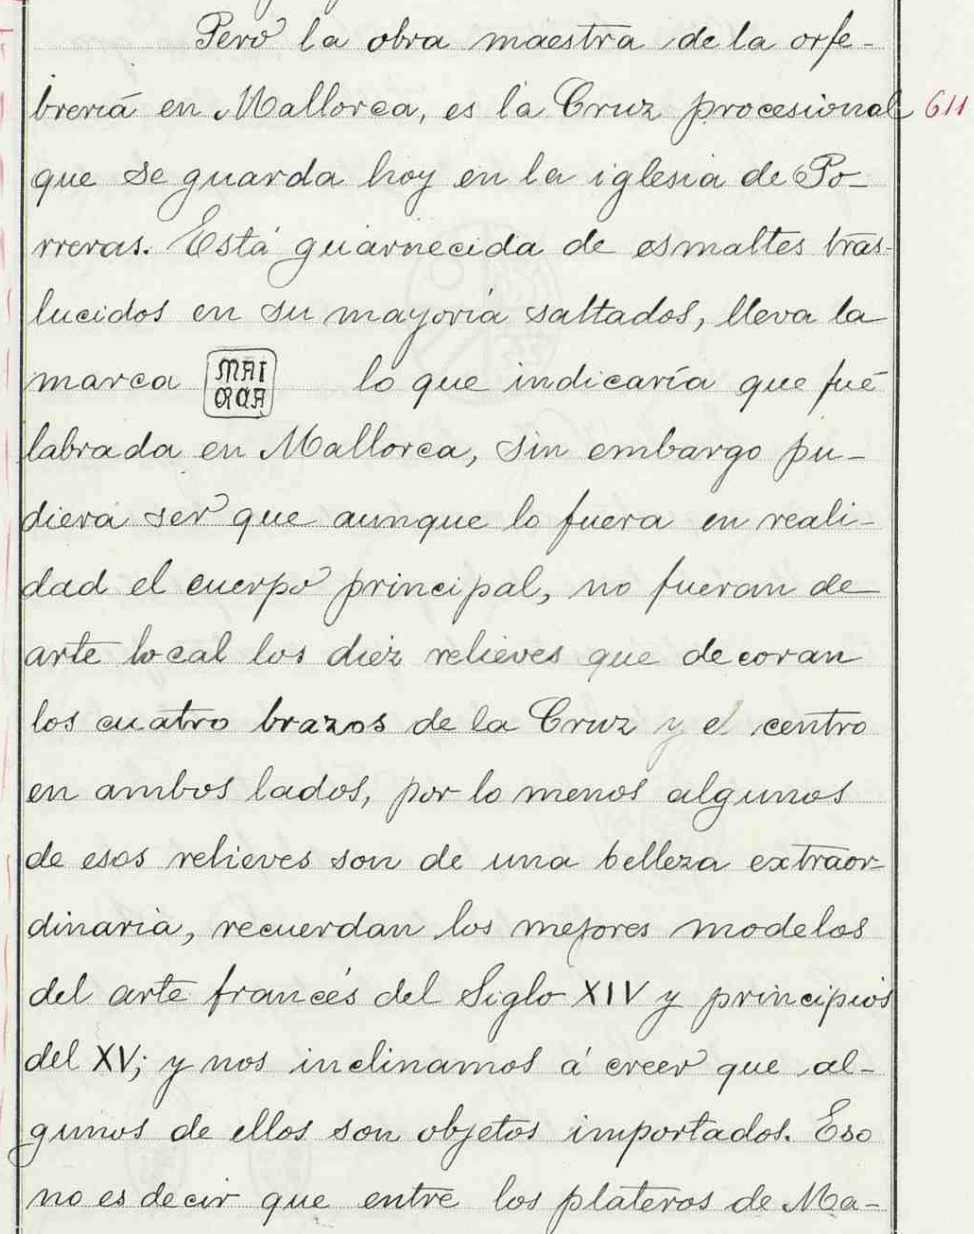 Pero la obra maestra de la orfe-
breriá en Mallorca, es la Cruz procesional 611
que se guarda hoy en la iglesia de Po-
rreras. Está guarnecida de esmaltes tras-
lucidos en su mayoria saltados, lleva la
marca MAI lo que indicaría que fué
ORCA
labrada en Mallorca, sin embargo pu-
diera ser que aunque lo fuera en reali-
dad el cuerpo principal, no fueran de
arte local los diez relieves que decoran
los cuatro brazos de la Cruz y el centro
en ambos lados, por lo menos algunos
de esos relieves son de una belleza extraor-
dinaria, recuerdan los mejores modelos
del arte francés del Siglo XIV y principios
del XV; y nos inclinamos á creer que al-
gunos de ellos son objetos importados. Eso
no es decir que entre los plateros de Ma-